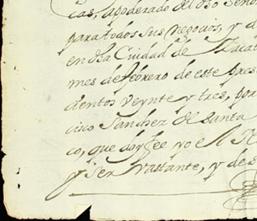 cas, apoderado del dho Señor
para todos sus negocios, y d
en dha Ciudad de
mes de febrero de este pres
cientos veynte y tres, por
cisco Sanchez de Santa
co, que doy fee yo el
y ser bastante, y de